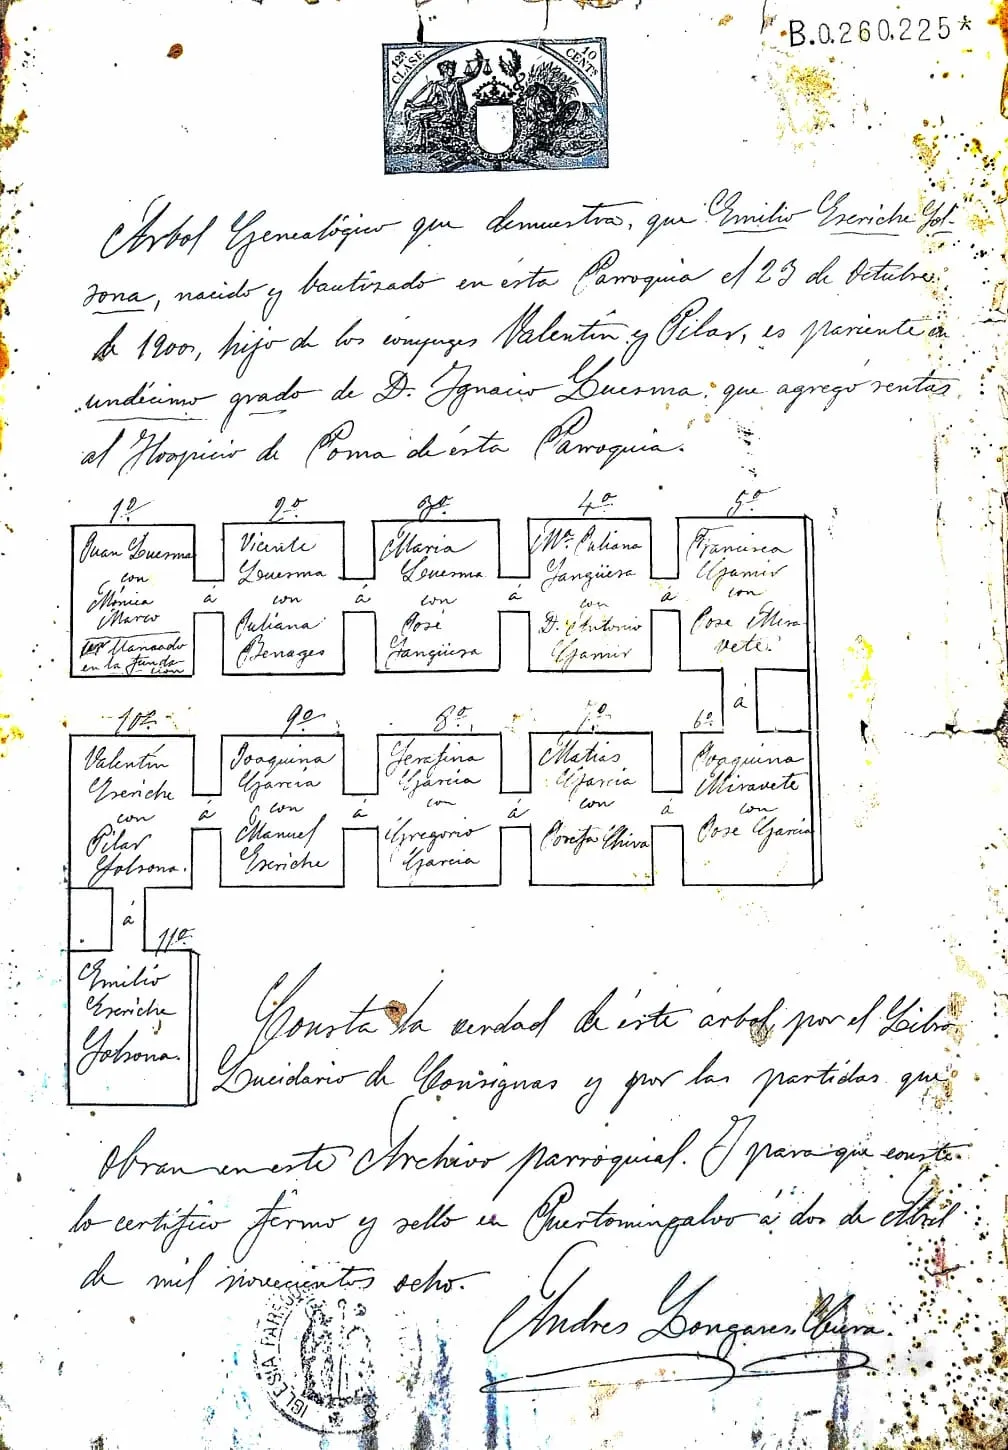 B.0.260.225*
12ª CLASE
10 CENTS
Arbol Genealógico que demuestra, que Emilio Escriche Sol-
sona, nacido y bautizado en ésta Parroquia el 23 de Octubre
de 1900, hijo de los conyuges Valentín y Pilar, es pariente en
undécimo grado de D. Ignacio Luesma que agregó rentas
al Hospicio de Poma de ésta Parroquia.
1º 2º 3º 4º 5º
Juan Luesma
con
Mónica
Marco
llamado
en la funda-
ción
á
Vicente
Luesma
con
Juliana
Benages
á
Maria
Luesma
con
José
Sangüesa
á
Mª Juliana
Sangüesa
con
D. Antonio
Gamir
á
Francisca
Gamir
con
Jose Mira-
vete.
á
10º 9º 8º 7º 6º
Valentín
Escriche
con
Pilar
Solsona.
á
Joaquina
Garcia
con
Manuel
Escriche
á
Serafina
Garcia
con
Gregorio
Garcia
á
Matias
Garcia
con
Josefa Chiva
á
Joaquina
Miravete
con
Jose Garcia
á
11º
Emilio
Escriche
Solsona.
Consta la verdad de éste arbol, por el Libro
Lucidario de Consignas y por las partidas que
obran en este Archivo parroquial. Y para que conste
lo certifico firmo y sello en Puertomingalvo á dos de Abril
de mil novecientos ocho.
Andres Longares. Cura.
IGLESIA PARROQ